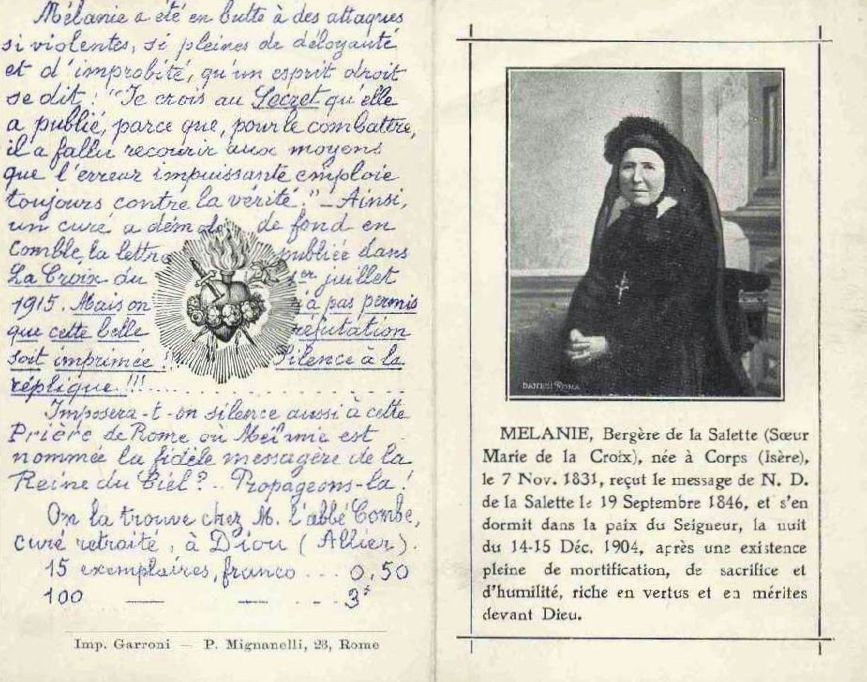 Mélanie a été en butte à des attaques
si violentes, si pleines de déloyauté
et d'improbité, qu'un esprit droit
se dit : "Je crois au Secret qu'elle
a publié, parce que, pour le combattre,
il a fallu recourir aux moyens
que l'erreur impuissante emploie
toujours contre la vérité." — Ainsi,
un curé a dém de fond en
comble, la lettre publiée dans
La Croix du 1er juillet
1915. Mais on a pas permis
que cette belle réfutation
soit imprimée !! Silence à la
réplique !!!
Imposera-t-on silence aussi à cette
Prière de Rome où Mélanie est
nommée la fidèle messagère de la
Reine du Ciel ? Propageons-la !
On la trouve chez M. l'abbé Combe,
curé retraité, à Diou (Allier).
15 exemplaires, franco ... 0,50
100 — — ... 3f
Imp. Garroni — P. Mignanelli, 23, Rome
DANESI ROMA
MELANIE, Bergère de la Salette (Sœur
Marie de la Croix), née à Corps (Isère),
le 7 Nov. 1831, reçut le message de N. D.
de la Salette le 19 Septembre 1846, et s'en
dormit dans la paix du Seigneur, la nuit
du 14-15 Déc. 1904, après une existence
pleine de mortification, de sacrifice et
d'humilité, riche en vertus et en mérites
devant Dieu.